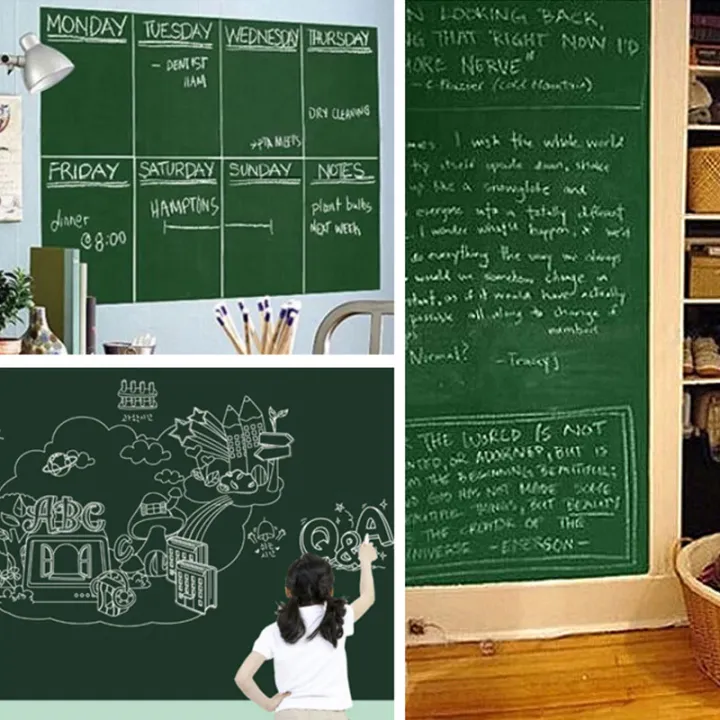 MONDAY
TUESDAY
- DENTIST
11AM
WEDNESDAY
PTA MEETS
THURSDAY
DRY CLEANING
FRIDAY
dinner
@ 8:00
SATURDAY
HAMPTONS
SUNDAY
NOTES
plant bulbs
NEXT WEEK
ABC
Q&A
N LOOKING BACK,
G THAT "RIGHT NOW I'D
MORE NERVE"
(Cold Mountain)
I wish the whole world
itself upside down, shake
up like a snowglobe and
everyone into a totally different
I wonder what'd happen, if we'd
do everything the way we always
would we somehow change
as if it would have actually
possible all along to change
numbers
Normal? - Tracy J
THE WORLD IS NOT
NTED, OR ADORNED, BUT IS
M THE BEGINNING BEAUTIFUL;
D GOD HAS NOT MADE SOME
EAUTIFUL THINGS, BUT BEAUTY
THE CREATOR OF THE
NIVERSE - EMERSON -